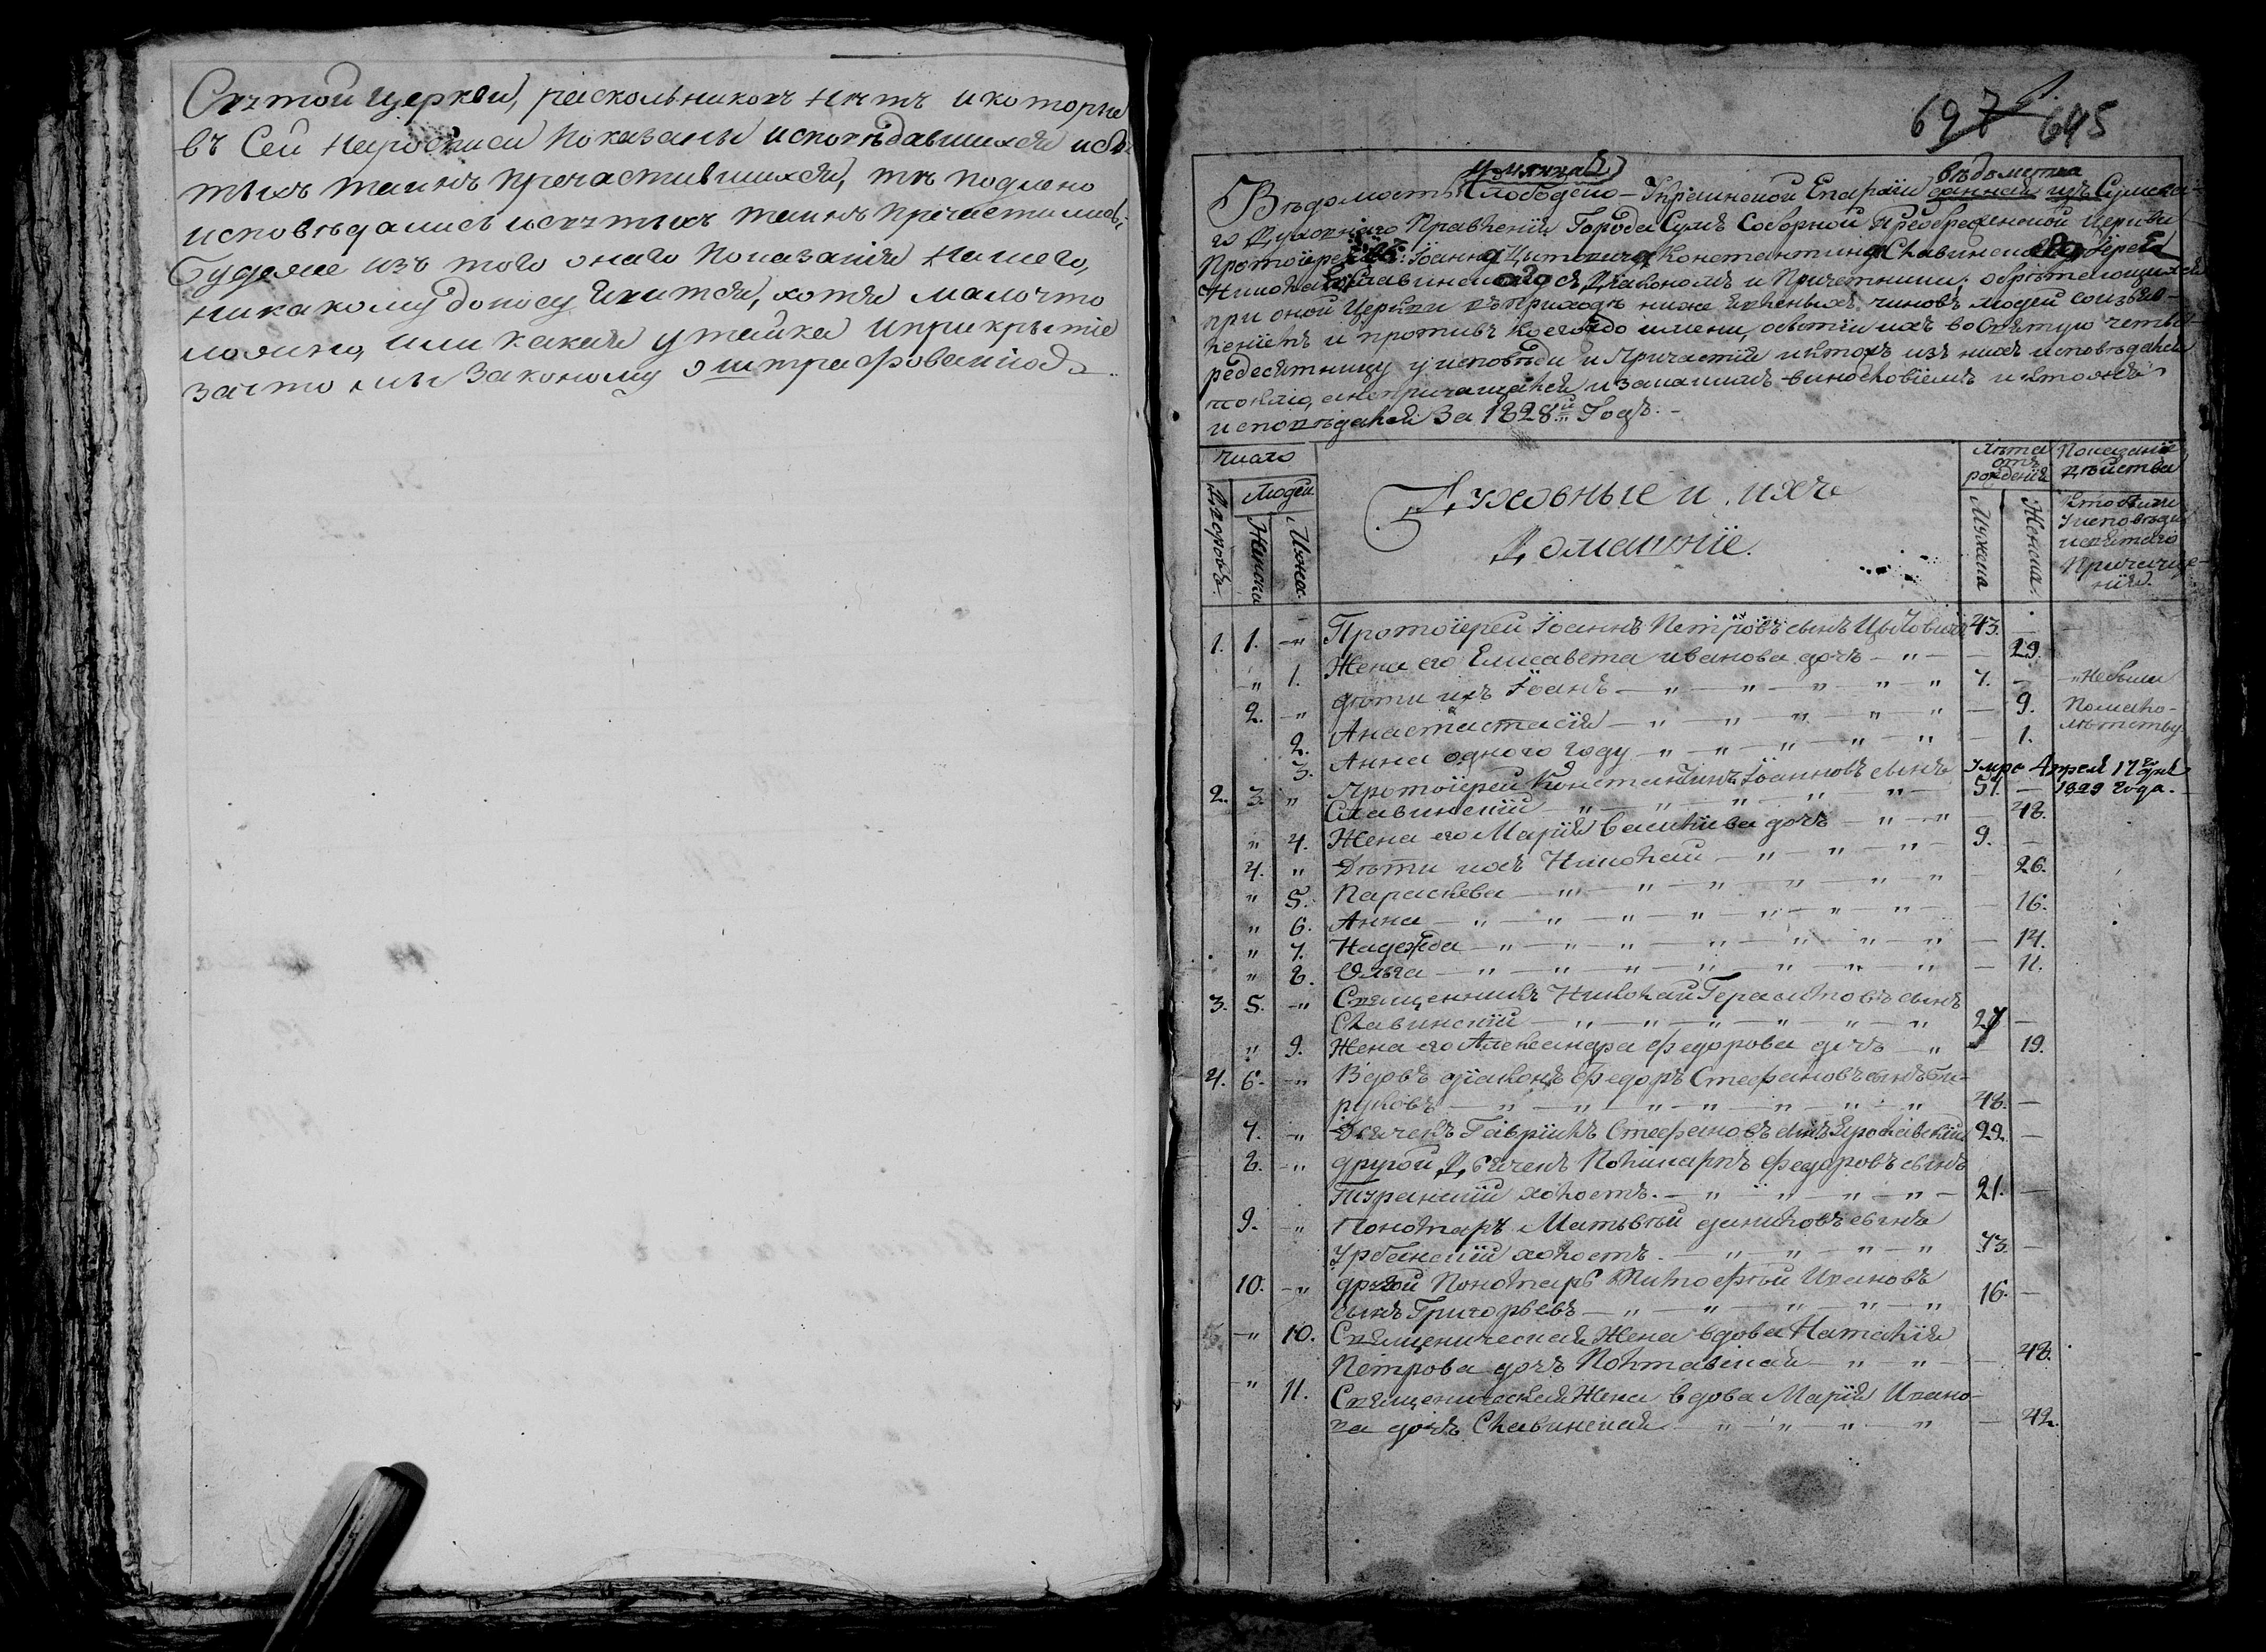 Святой Церкви, раскольниковъ нѣтъ и которые
въ сей нероспиcи показаны исповѣдавшимися и свя-
тыхъ таинъ причастившимися, тѣ подлено
исповѣдались и святыхъ таинъ причастились,
будеже изъ того онаго показанія нашего,
по какому доносу явится, хотя мало что
ложно, или какая утайка и прикрытіе
за что мы законому оштрафованію
697 645
Вѣдомость Слободско-Украинской Епархіи вѣдомства изъ Сумска-
го Духовнаго Правленія Города Сумъ Соборной Преображенской Церкви
Протоіерей Іоанна Цытовича Константина Славинскаго Іерея
Николая Славинскаго съ Діакономъ и Причетники, обрѣтающихся
при оной Церкви въ приходѣ ниже явленныхъ чиновъ людей со изъяв-
леніемъ и противъ коегождо имени, о бытіи ихъ во Святую четы-
редесятницу у исповѣди и Причастія и ктожъ изъ нихъ исповѣдался
токмо, а не причащался и за какимъ винословіемъ и кто не
исповѣдался За 1828й Годъ.
число
Лѣта отъ рожденія
Показаніе дѣйства
Дворовъ
Людей
Женска
Мужеск.
Духовные и ихъ
Домашніе.
Мужеска
Женска
Кто были у исповѣди и святаго Причащенія.
1. 1. -" Протоіерей Іоаннъ Петровъ сынъ Цытовичъ 43. —
-" 1. Жена его Елисавета иванова дочь — 29.
2. -" дѣти ихъ Іоанъ 7. — Небыли
2. Анастасія — 9. Помало-
3. Анна одного году — 1. лѣтству
2. 3. " Протоіерей Константинъ Іоанновъ сынъ Умре Апреля 17го дня
Славинскій 51. — 1829 года.
" 4. Жена его Марія Васильева дочь — 48.
4. " Дѣти ихъ Николай 9. —
" 5. Параскева — 26.
" 6. Анна — 16.
" 7. Надежда — 14.
" 8. Ольга — 11.
3. 5. -" Священникъ Николай Герасимовъ сынъ
Славинскій 27 —
" 9. Жена его Александра Федорова дочь 19.
4. 6. -" Вдовъ діаконъ Федоръ Стефановъ сынъ Би-
руковъ 48. —
7. -" Дьячекъ Гавріилъ Стефановъ сынъ Ярославскій 22. —
8. -" другой Дьячекъ Поликарпъ Федоровъ сынъ
холостъ. 21. —
9. -" Пономарь Матвѣй даниловъ сынъ
Урбанскій холостъ. 73. —
10. -" другой Пономарь Тимофей Ивановъ
сынъ Григорьевъ 16. —
-" 10. Священическая Жена вдова Наталія
Петрова дочь Полтавская — 48.
" 11. Священическая Жена вдова Марія Ивано-
ва дочь Славинская — 42.